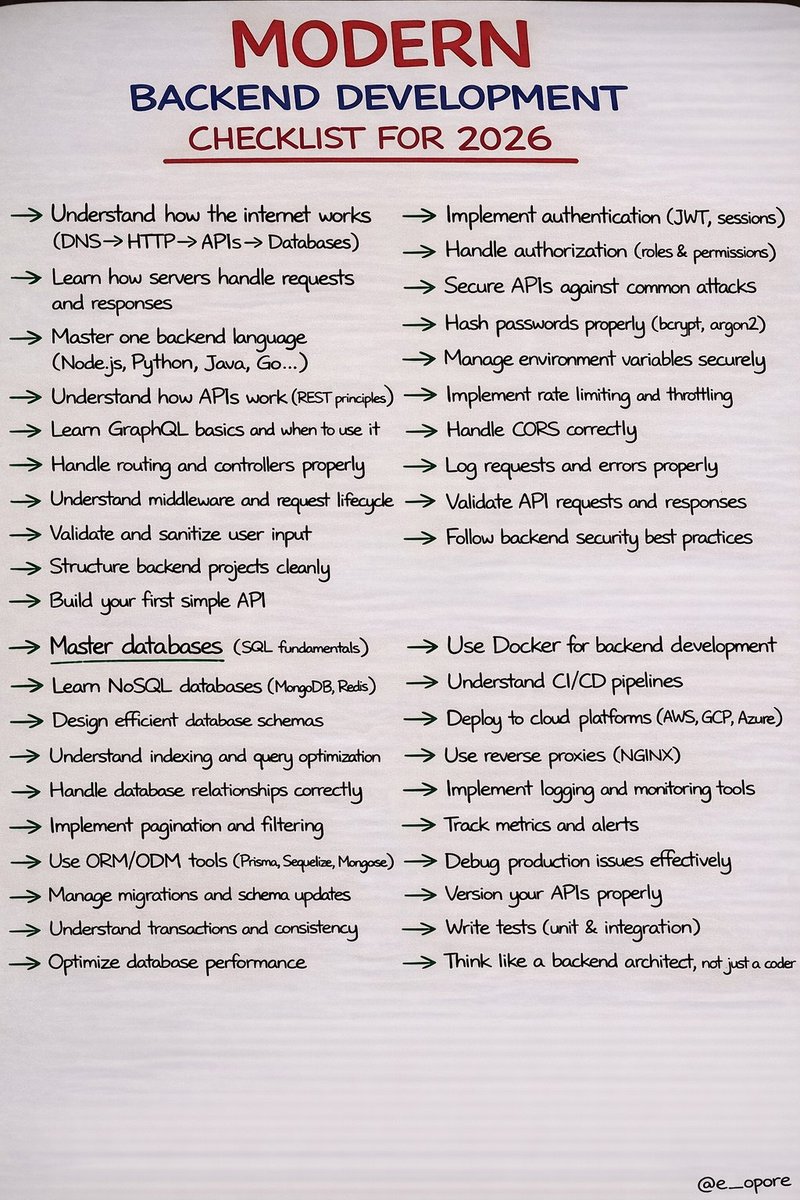 MODERN
BACKEND DEVELOPMENT
CHECKLIST FOR 2026
→ Understand how the internet works
(DNS→HTTP→APIs→Databases)
→ Learn how servers handle requests
and responses
→ Master one backend language
(Node.js, Python, Java, Go...)
→ Understand how APIs work (REST principles)
→ Learn GraphQL basics and when to use it
→ Handle routing and controllers properly
→ Understand middleware and request lifecycle
→ Validate and sanitize user input
→ Structure backend projects cleanly
→ Build your first simple API
→ Implement authentication (JWT, sessions)
→ Handle authorization (roles & permissions)
→ Secure APIs against common attacks
→ Hash passwords properly (bcrypt, argon2)
→ Manage environment variables securely
→ Implement rate limiting and throttling
→ Handle CORS correctly
→ Log requests and errors properly
→ Validate API requests and responses
→ Follow backend security best practices
→ Master databases (SQL fundamentals)
→ Learn NoSQL databases (MongoDB, Redis)
→ Design efficient database schemas
→ Understand indexing and query optimization
→ Handle database relationships correctly
→ Implement pagination and filtering
→ Use ORM/ODM tools (Prisma, Sequelize, Mongose)
→ Manage migrations and schema updates
→ Understand transactions and consistency
→ Optimize database performance
→ Use Docker for backend development
→ Understand CI/CD pipelines
→ Deploy to cloud platforms (AWS, GCP, Azure)
→ Use reverse proxies (NGINX)
→ Implement logging and monitoring tools
→ Track metrics and alerts
→ Debug production issues effectively
→ Version your APIs properly
→ Write tests (unit & integration)
→ Think like a backend architect, not just a coder
@e_opore